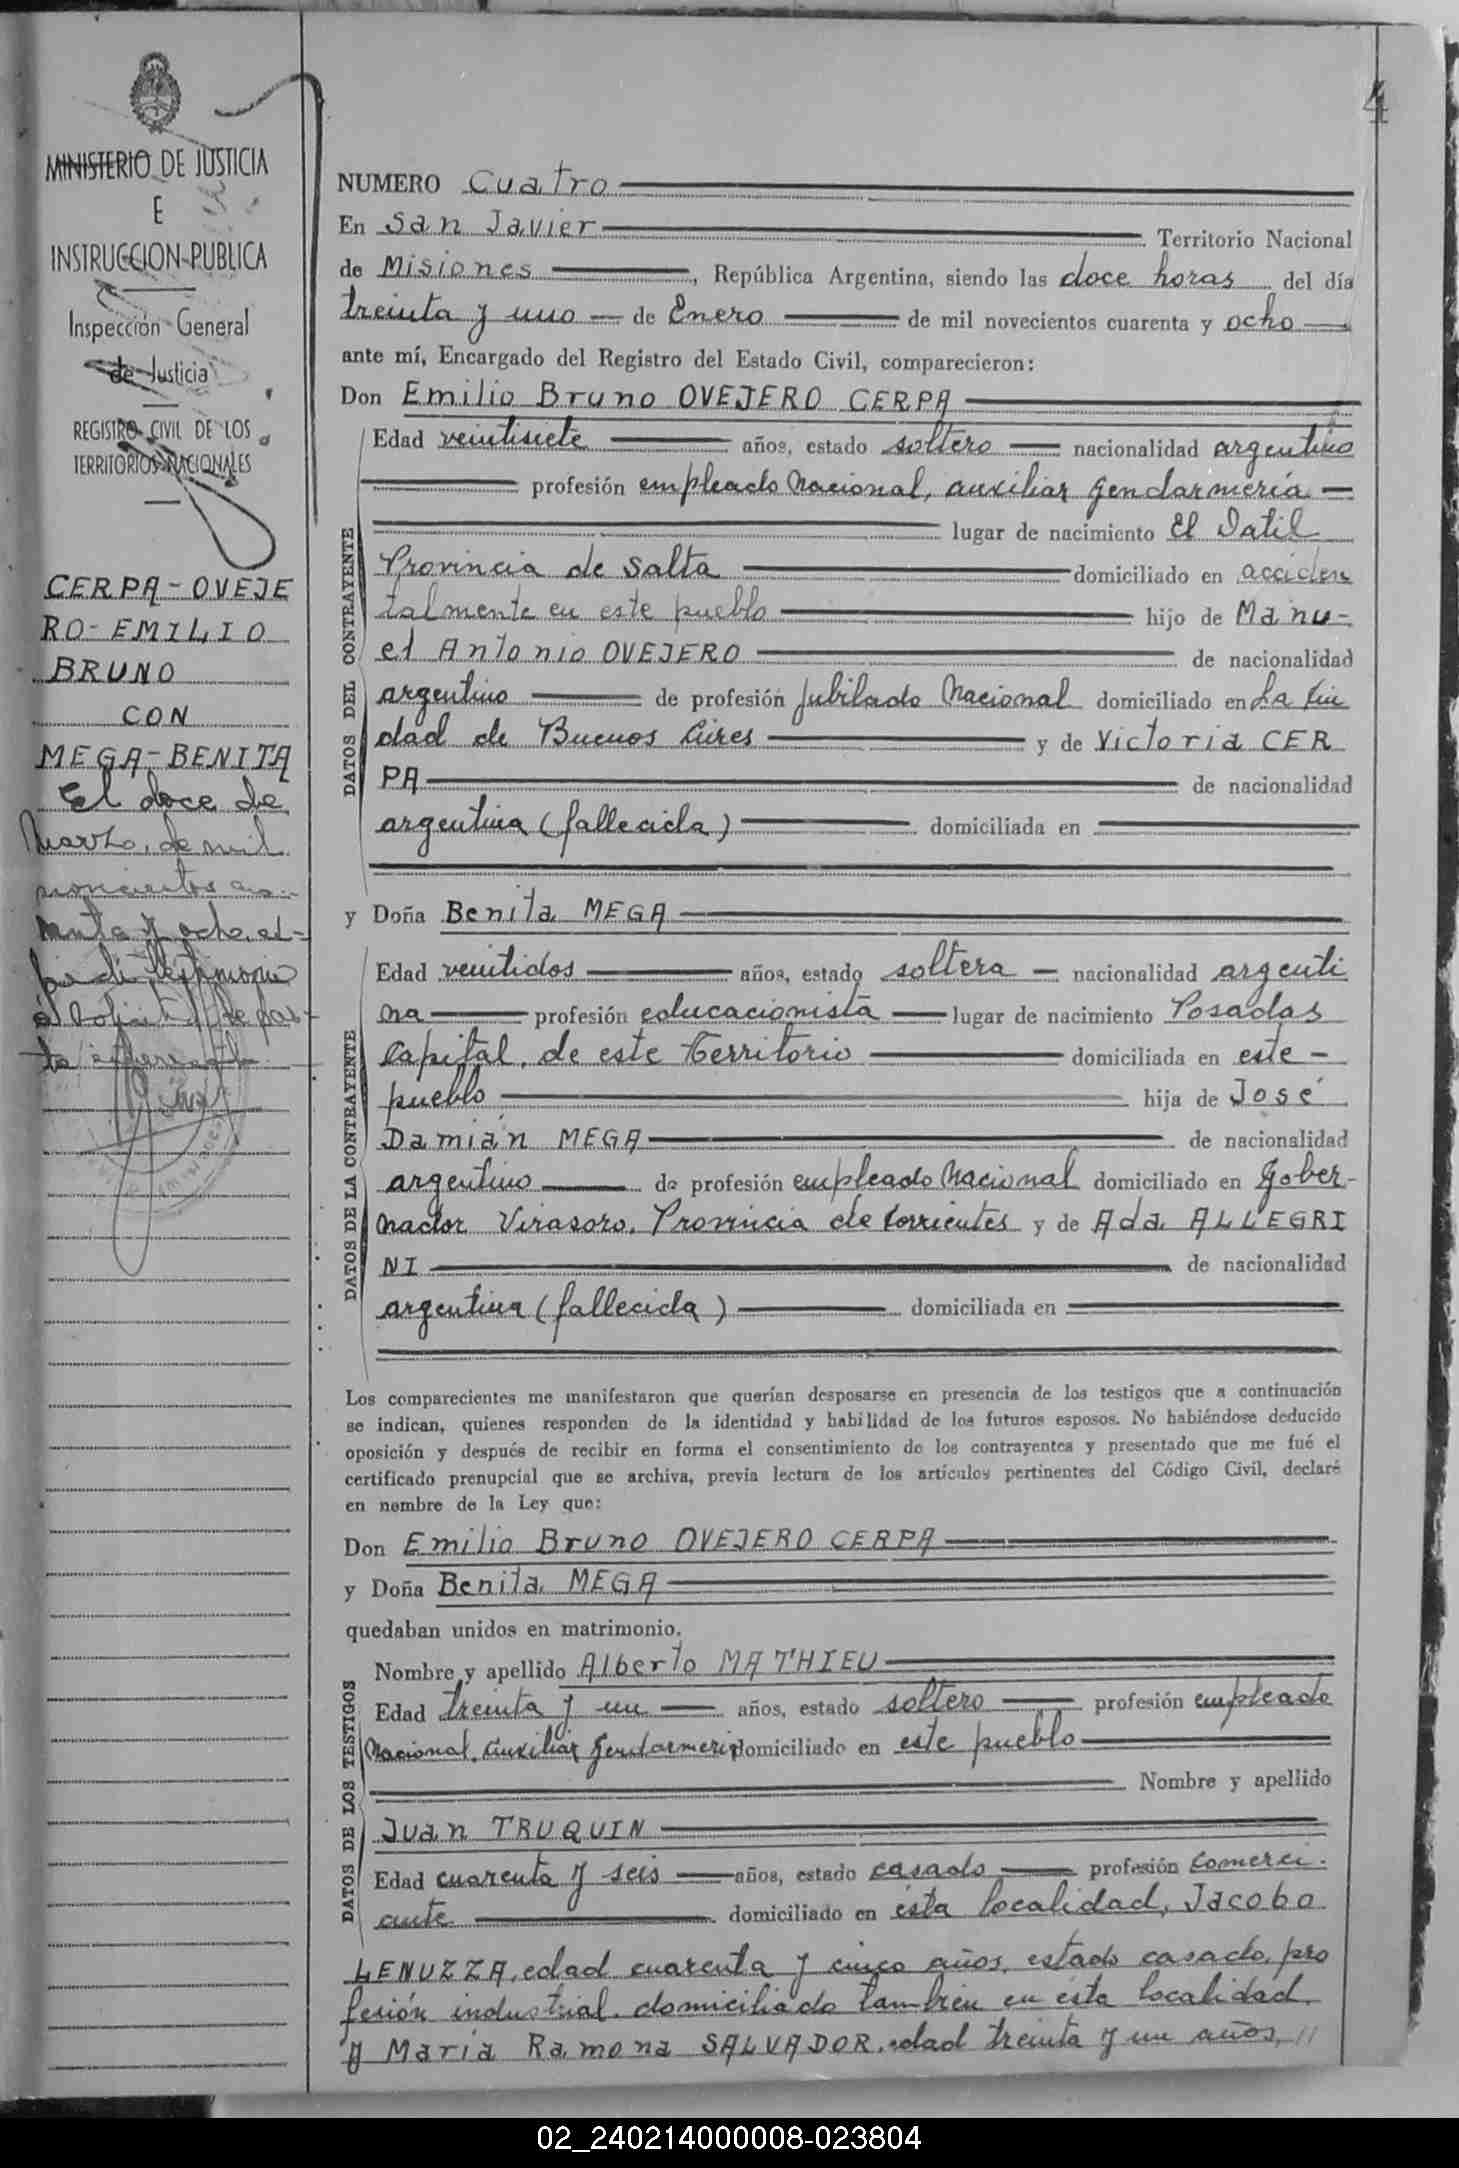 4
MINISTERIO DE JUSTICIA
E
INSTRUCCION PUBLICA
Inspección General
de Justicia
REGISTRO CIVIL DE LOS
TERRITORIOS NACIONALES
CERPA-OVEJE
RO-EMILIO
BRUNO
CON
MEGA-BENITA
El doce de
Marzo, de mil
y ocho, ex-
NUMERO Cuatro
En San Javier Territorio Nacional
de Misiones, República Argentina, siendo las doce horas del día
treinta y uno de Enero de mil novecientos cuarenta y ocho
ante mí, Encargado del Registro del Estado Civil, comparecieron:
Don Emilio Bruno OVEJERO CERPA
DATOS DEL CONTRAYENTE
Edad veintisiete años, estado soltero nacionalidad argentino
profesión empleado Nacional, auxiliar Gendarmería
lugar de nacimiento El Datil
Provincia de Salta domiciliado en acciden
talmente en este pueblo hijo de Manu-
el Antonio OVEJERO de nacionalidad
argentino de profesión Jubilado Nacional domiciliado en La Ciu
dad de Buenos Aires y de Victoria CER
PA de nacionalidad
argentina (fallecida) domiciliada en
y Doña Benita MEGA
DATOS DE LA CONTRAYENTE
Edad veintidos años, estado soltera nacionalidad argenti
na profesión educacionista lugar de nacimiento Posadas
Capital, de este Territorio domiciliada en este
pueblo hija de José
Damián MEGA de nacionalidad
argentino de profesión empleado Nacional domiciliado en Gober-
nador Virasoro, Provincia de Corrientes y de Ada ALLEGRI
NI de nacionalidad
argentina (fallecida) domiciliada en
Los comparecientes me manifestaron que querían desposarse en presencia de los testigos que a continuación
se indican, quienes responden de la identidad y habilidad de los futuros esposos. No habiéndose deducido
oposición y después de recibir en forma el consentimiento de los contrayentes y presentado que me fué el
certificado prenupcial que se archiva, previa lectura de los artículos pertinentes del Código Civil, declaré
en nombre de la Ley que:
Don Emilio Bruno OVEJERO CERPA
y Doña Benita MEGA
quedaban unidos en matrimonio.
DATOS DE LOS TESTIGOS
Nombre y apellido Alberto MATHIEU
Edad treinta y un años, estado soltero profesión empleado
Nacional, Auxiliar Gendarmería domiciliado en este pueblo
Nombre y apellido
Juan TRUQUIN
Edad cuarenta y seis años, estado casado profesión Comerci-
ante domiciliado en esta localidad, Jacobo
LENUZZA, edad cuarenta y cinco años, estado casado, pro
fesión industrial, domiciliado también en ésta localidad,
y María Ramona SALVADOR, edad treinta y un años, //
02_240214000008-023804